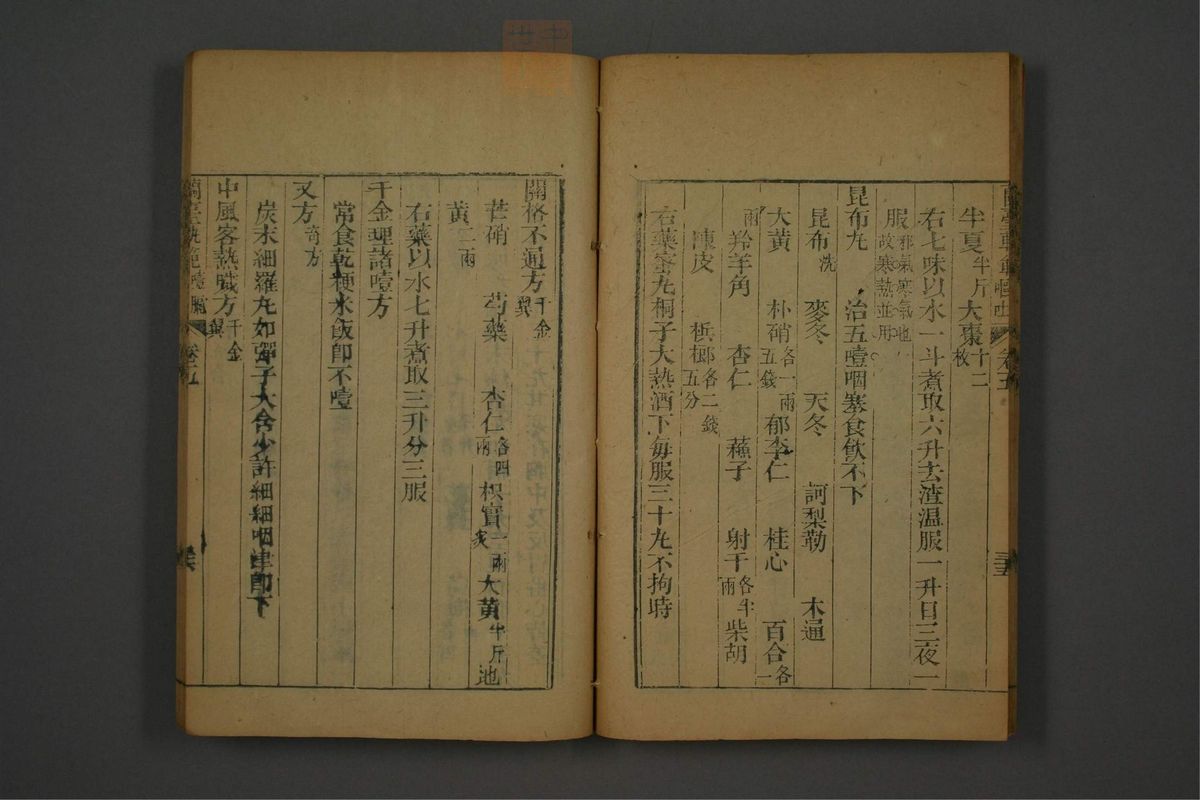 半夏半斤大棗十二枚
右七味以水一斗煮取六升去渣温服一升日三夜一
服邪氣寒氣也故寒熱並用
昆布丸 治五噎咽塞食飲不下
昆布洗 麥冬 天冬 訶梨勒 木通
大黃 朴硝各一兩五錢郁李仁 桂心 百合各一
兩羚羊角 杏仁 蘇子 射干各半兩柴胡
陳皮 梹榔各二錢五分
右藥蜜丸桐子大熱酒下每服三十丸不拘時
關格不通方千金翼
芒硝 芍藥 杏仁各四兩枳實一兩炙大黃半斤地
黃二兩
右藥以水七升煮取三升分三服
千金理諸噎方
常食乾粳米飯即不噎
又方奇方
炭末細羅丸如彈子大含少許細細咽津即下
中風客熱噦方千金翼
卷五